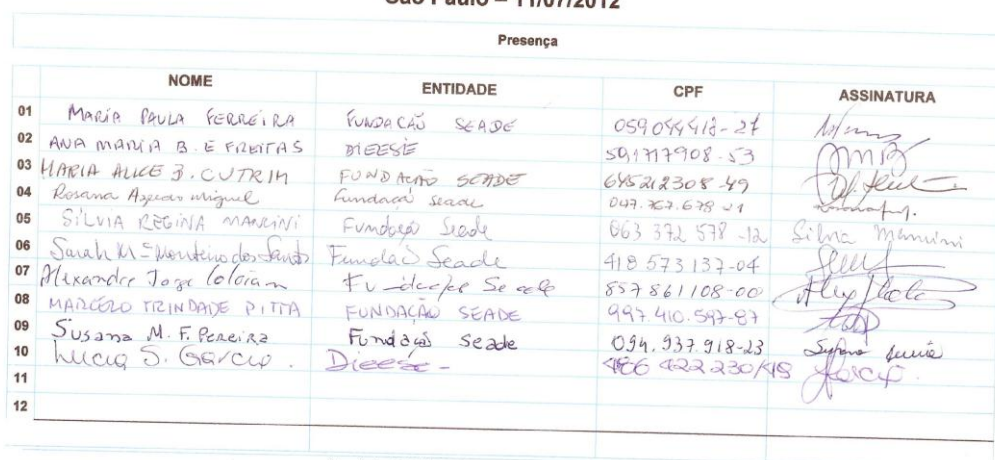 São Paulo – 11/07/2012
Presença
NOME ENTIDADE CPF ASSINATURA
01 MARIA PAULA FERREIRA FUNDAÇÃO SEADE
02 ANA MARIA B. E FREITAS DIEESE 591717908-53
03 MARIA ALICE B. CUTRIM FUNDAÇÃO SEADE 645212308-49
04 Rosana Azevedo Miguel Fundação Seade
05 SILVIA REGINA MANCINI Fundação Seade 063 372 578-12 Silvia Mancini
06 Sarah Mª Monteiro dos Santos Fundação Seade 418 573 137-04
07 Alexandre Jorge Loloian Fundação Seade 857861108-00
08 MARCELO TRINDADE PITTA FUNDAÇÃO SEADE 997.410.597-87
09 Susana M. F. Pereira Fundação Seade 094.937.918-23
10 Lucia S. Garcia. Dieese - 486 422 230/48
11
12